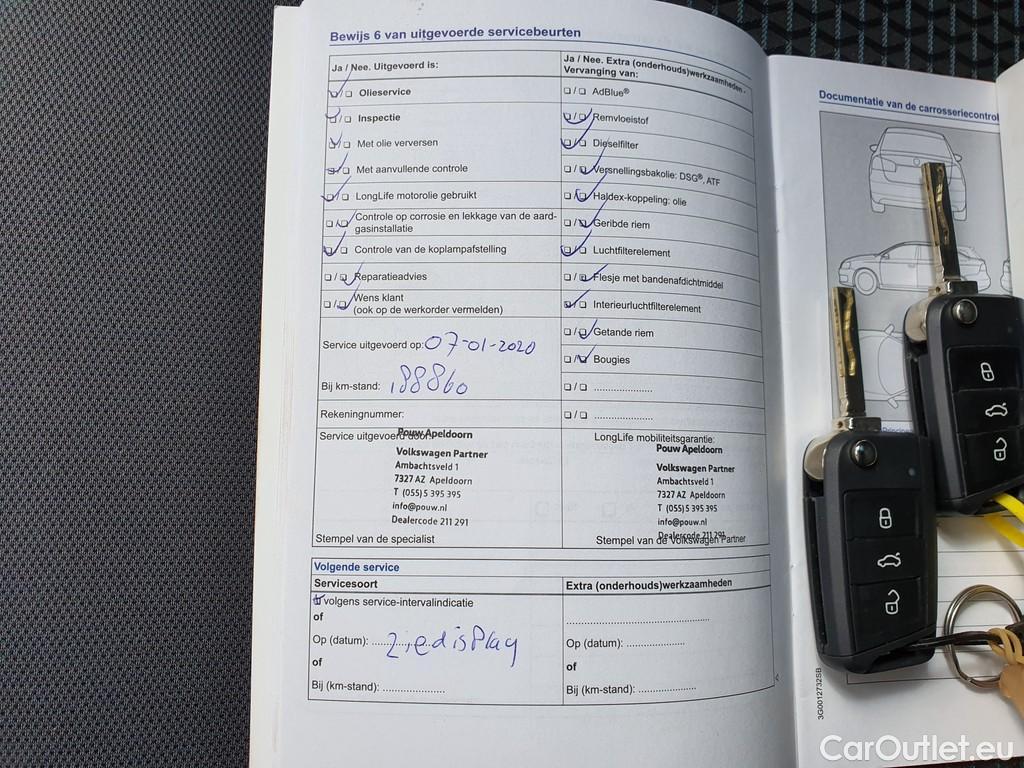 Bewijs 6 van uitgevoerde servicebeurten
Ja / Nee. Uitgevoerd is:
Olieservice
Inspectie
Met olie verversen
Met aanvullende controle
LongLife motorolie gebruikt
Controle op corrosie en lekkage van de aard-
gasinstallatie
Controle van de koplampafstelling
Reparatieadvies
Wens klant
(ook op de werkorder vermelden)
Service uitgevoerd op: 07-01-2020
Bij km-stand: 188860
Rekeningnummer:
Service uitgevoerd door:
Pouw Apeldoorn
Volkswagen Partner
Ambachtsveld 1
7327 AZ Apeldoorn
T (055) 5 395 395
info@pouw.nl
Dealercode 211 291
Stempel van de specialist
Ja / Nee. Extra (onderhouds)werkzaamheden -
Vervanging van:
AdBlue®
Remvloeistof
Dieselfilter
Versnellingsbakolie: DSG®, ATF
Haldex-koppeling: olie
Geribde riem
Luchtfilterelement
Flesje met bandenafdichtmiddel
Interieurluchtfilterelement
Getande riem
Bougies
LongLife mobiliteitsgarantie:
Pouw Apeldoorn
Volkswagen Partner
Ambachtsveld 1
7327 AZ Apeldoorn
T (055) 5 395 395
info@pouw.nl
Dealercode 211 291
Stempel van de Volkswagen Partner
Volgende service
Servicesoort
volgens service-intervalindicatie
of
Op (datum): Zie display
of
Bij (km-stand):
Extra (onderhouds)werkzaamheden
Op (datum):
of
Bij (km-stand):
Documentatie van de carrosseriecontrol
3G0012732SB
CarOutlet.eu